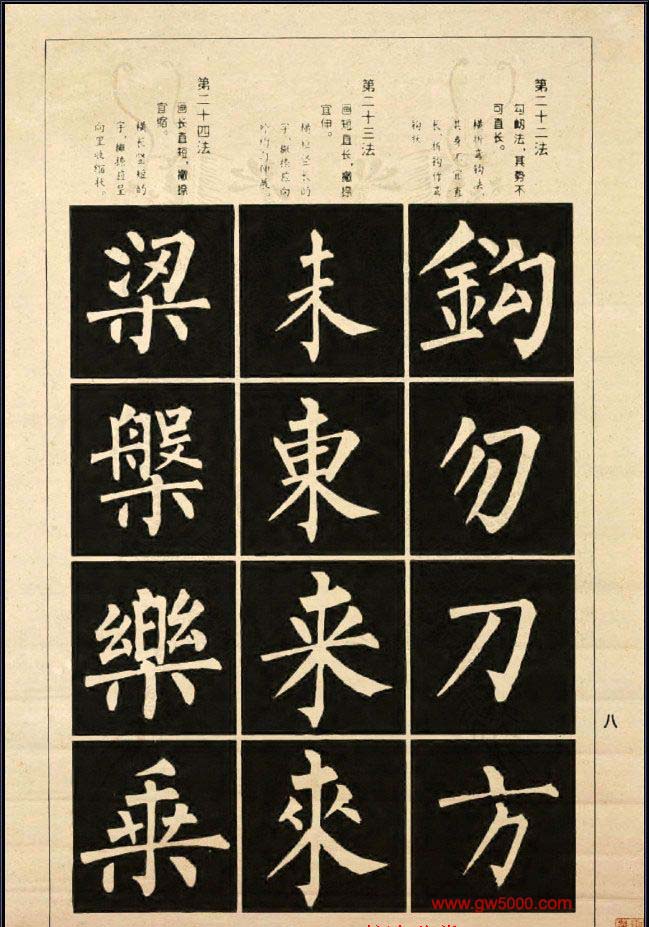 第二十二法
勾法,其势不
可直长。
横折弯钩法,
其身不宜直
长,折钩作弯
钩状
鈎
勿
刀
方
第二十三法
画短直长,撇捺
宜伸。
横短竖长的
字,撇捺应向
外均匀伸展。
未
東
来
來
第二十四法
画长直短,撇捺
宜缩。
横长竖短的
字,撇捺应呈
向里收缩状。
梁
槃
樂
乗
八
www.gw5000.com